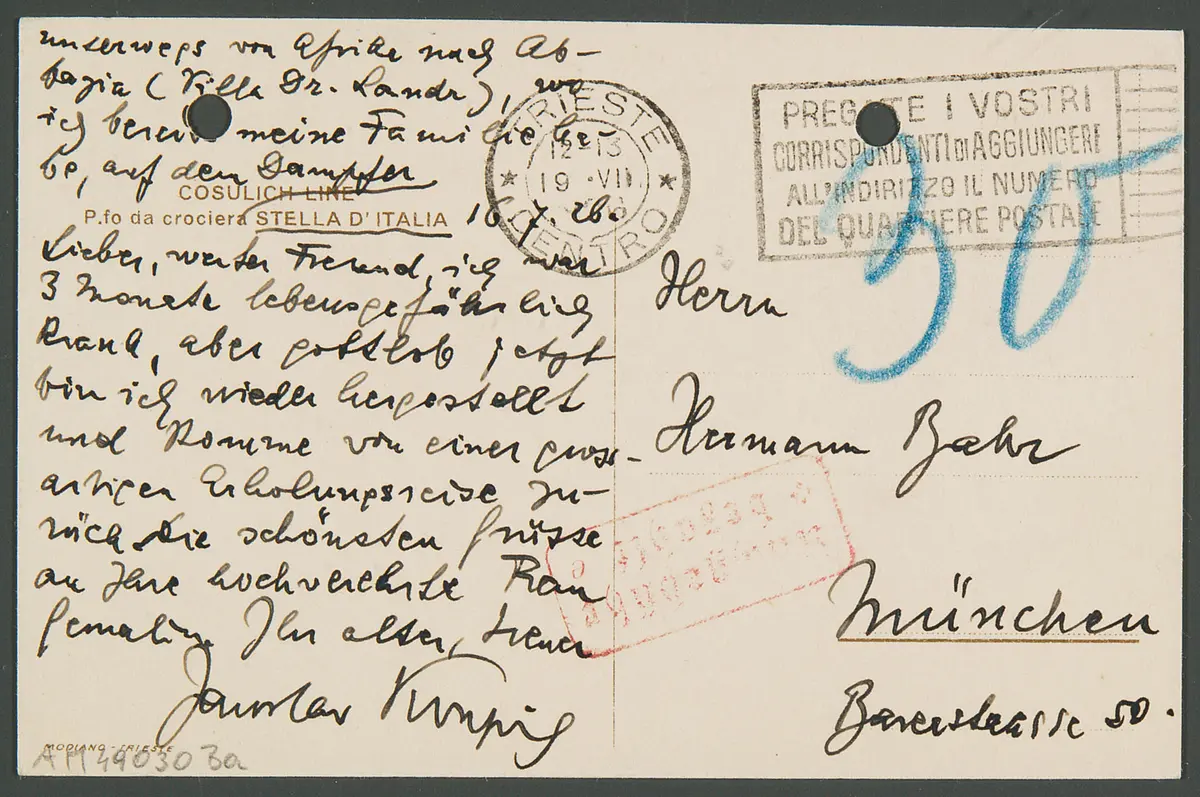 unterwegs von Afrika nach Ab-
bazia (Villa Dr. Landr), wo
ich bereits meine Familie ha-
be, auf dem Dampfer
COSULICH LINE
P.fo da crociera STELLA D'ITALIA
Lieber, werter Freund, ich war
3 Monate lebensgefährlich
krank, aber gottlob jetzt
bin ich wieder hergestellt
und komme von einer gross-
artigen Erholungsreise zu-
rück. Die schönsten Grüsse
an Ihre hochverehrte Frau
Gemalin. Ihr alter, treuer
Jaroslav
MODIANO - TRIESTE
AM 49030 Ba
TRIESTE
12-13
19 .VII
CENTRO
PREGATE I VOSTRI
CORRISPONDENTI DI AGGIUNGERE
ALL'INDIRIZZO IL NUMERO
DEL QUARTIERE POSTALE
30
Herrn
Hermann Bahr
München
Barerstrasse 50.